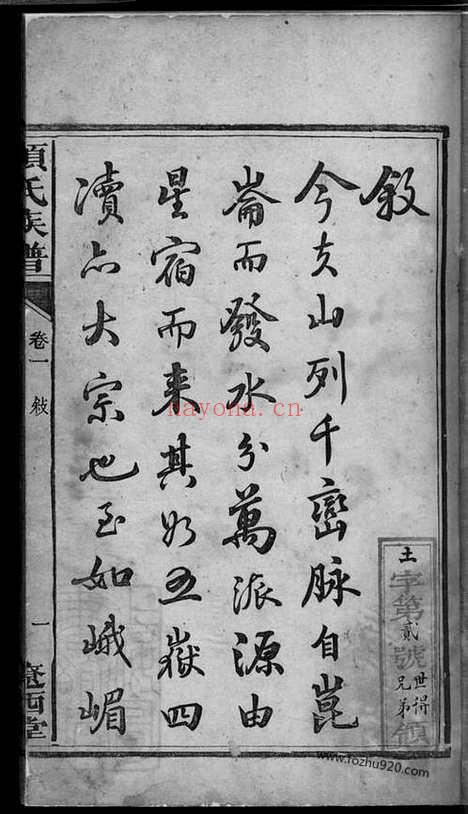 敘
今夫山列千巒脉自崑
崙而發水分萬派源由
星宿而来其如五嶽四
瀆亦大宗也至如峨嵋
項氏族譜
卷一
敍
一
西堂
土
字第貳號
世得
兄弟
nayona.cn
www.fozhu920.com